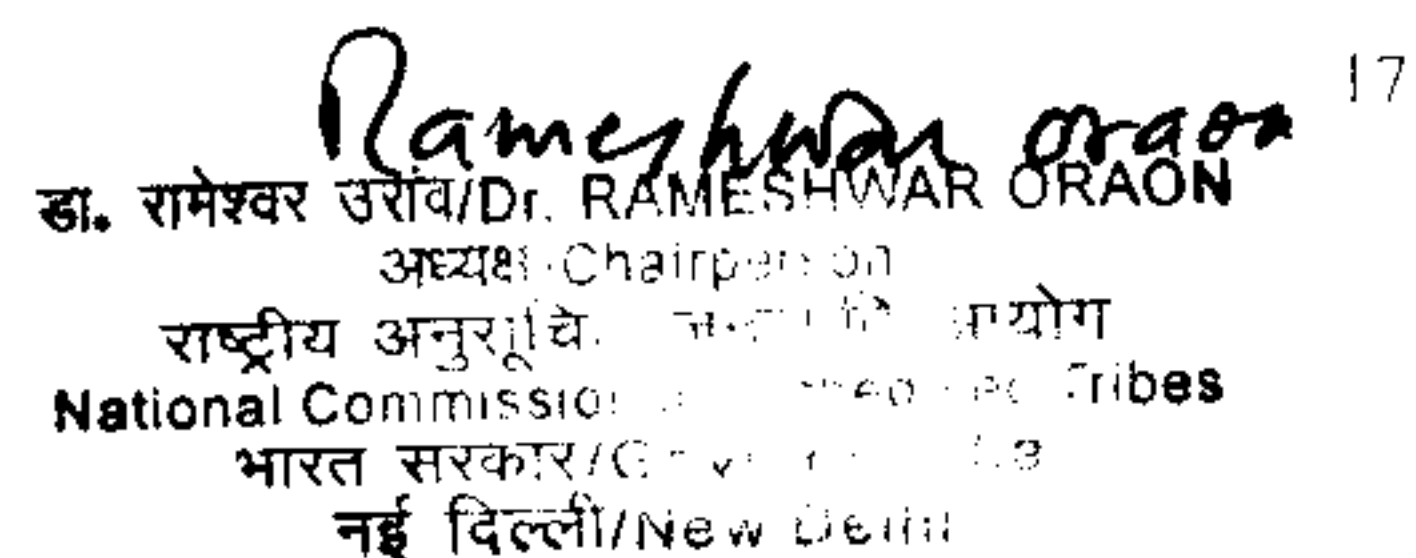 17
Rameshwar Oraon
डा. रामेश्वर उरांव/Dr. RAMESHWAR ORAON
अध्यक्ष/Chairperson
राष्ट्रीय आयोग
National Commission Tribes
भारत सरकार/
नई दिल्ली/New Delhi